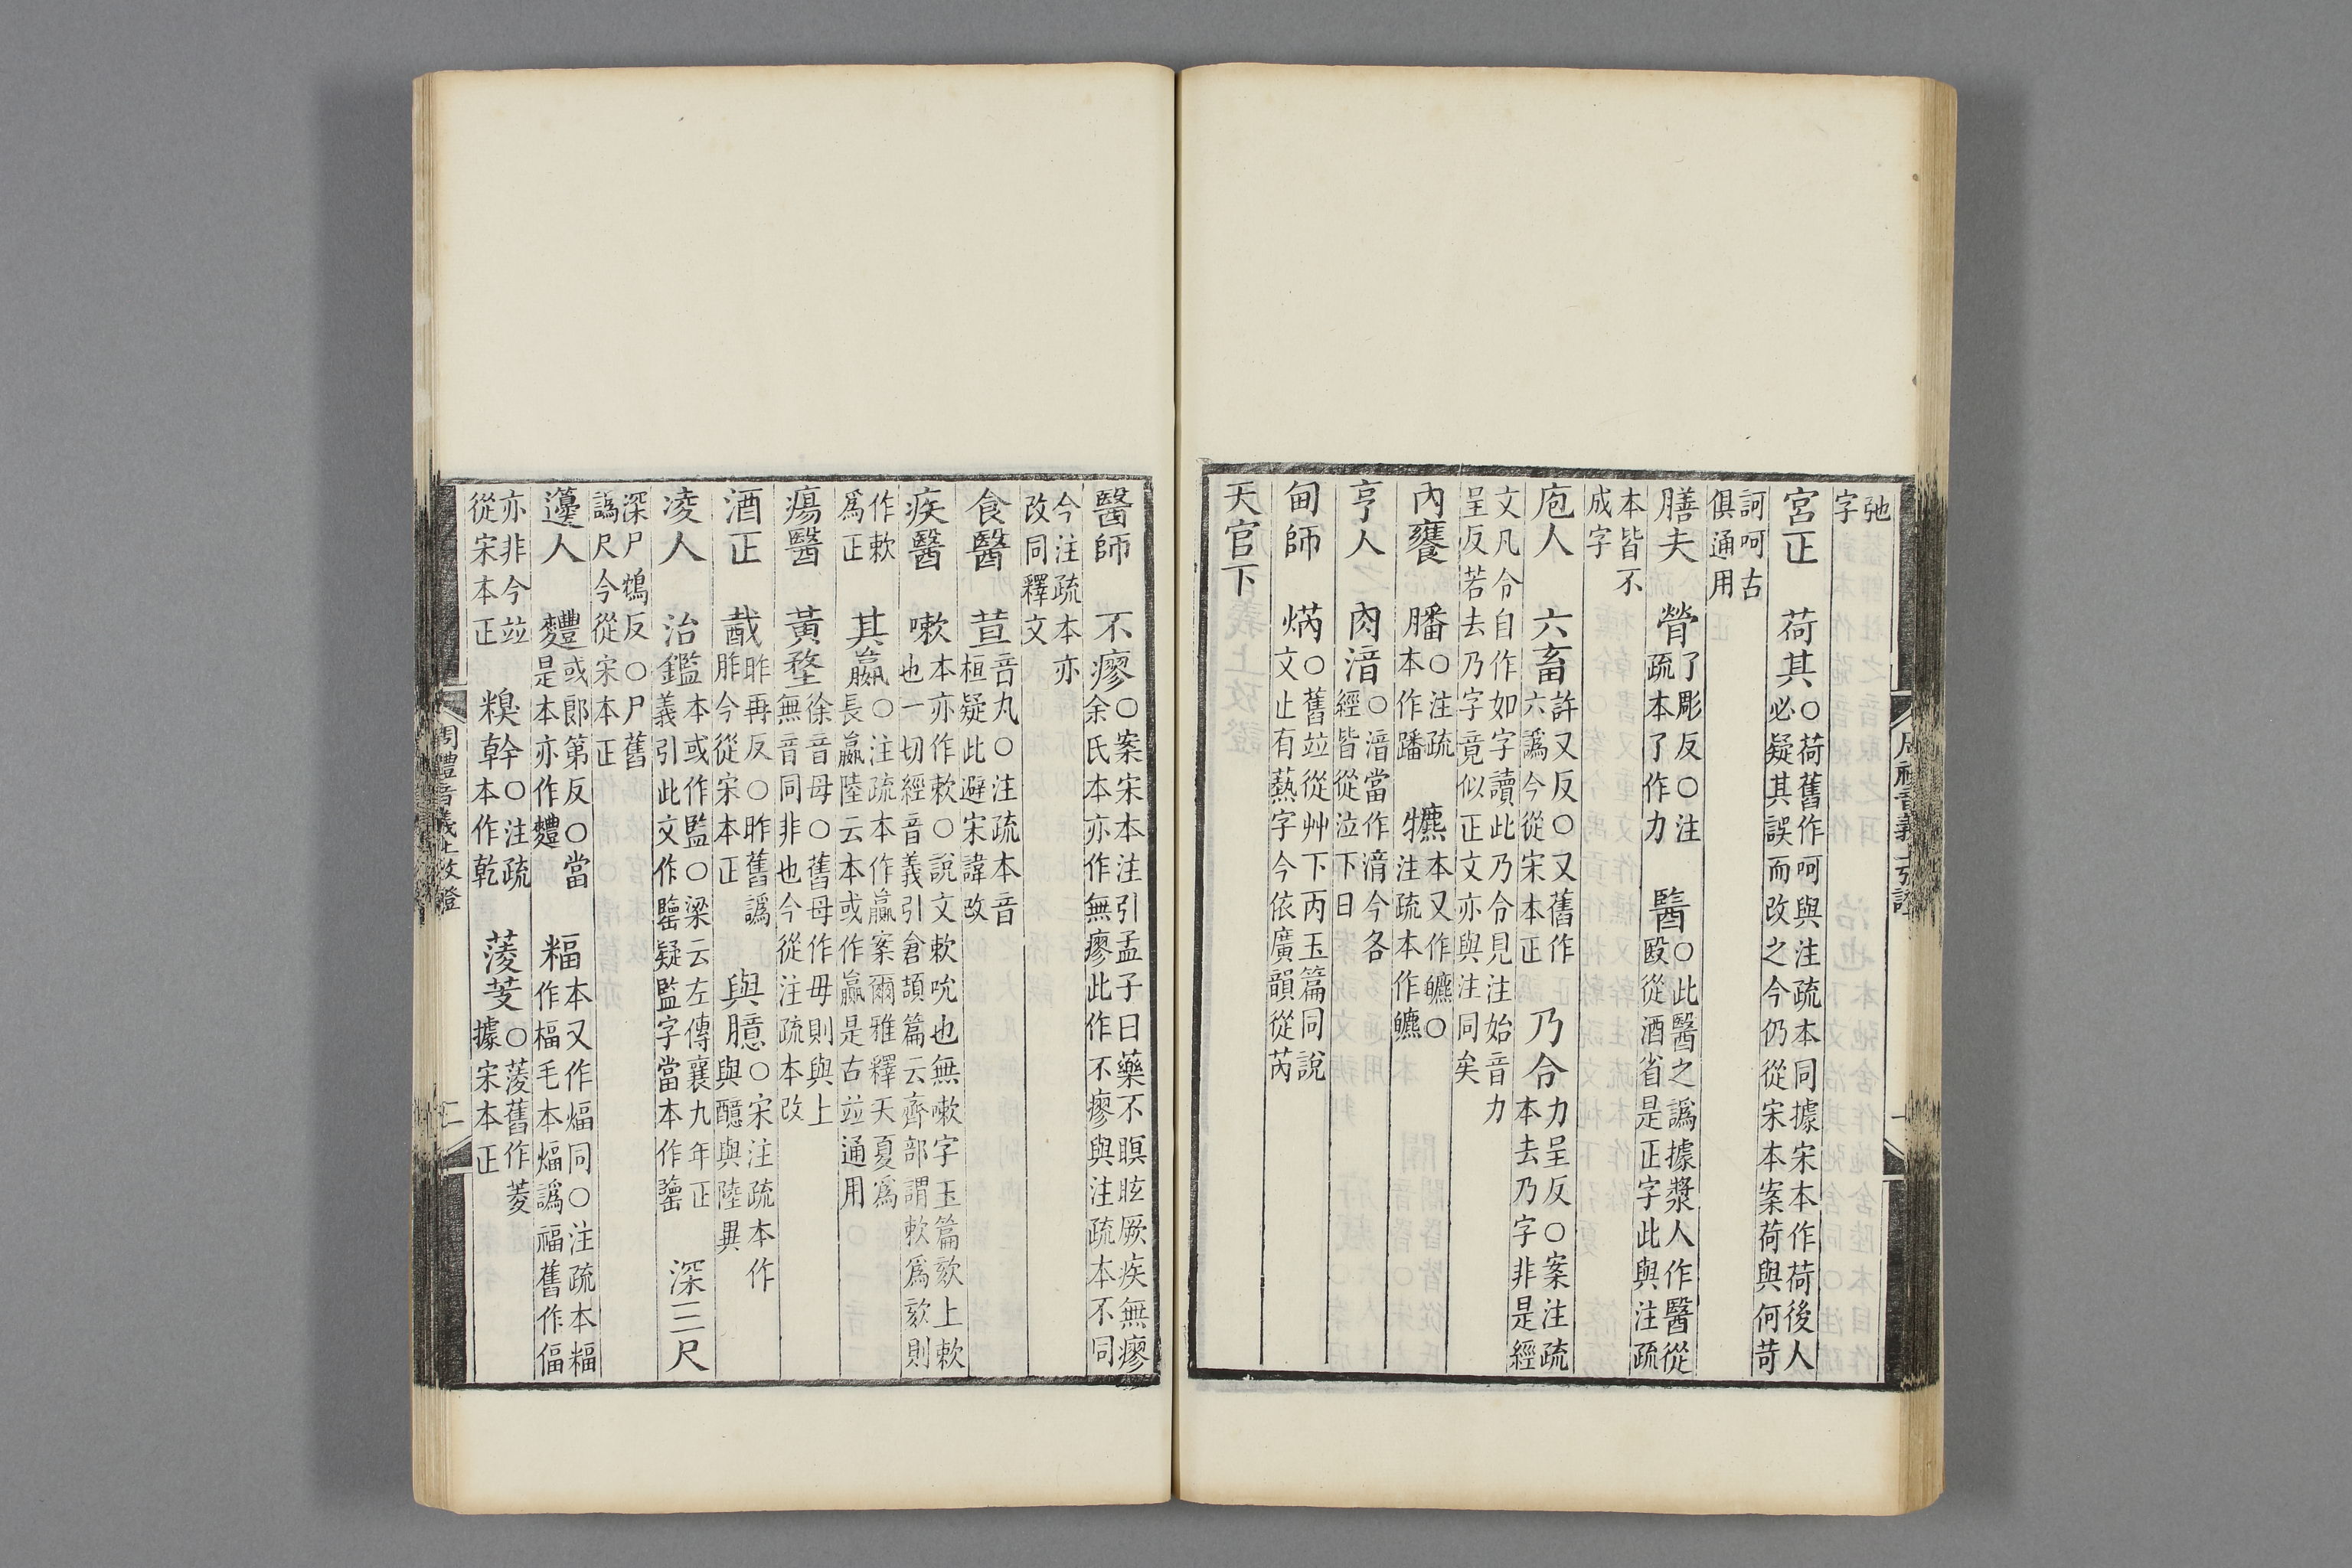 弛字
宮正 荷其○荷舊作呵與注疏本同據宋本作荷後人必疑其誤而改之今仍從宋本案荷與何苛
訶呵古俱通用
膳夫 膋了彫反○注疏本了作力 醫○此醫之譌據漿人作醫從殹從酒省是正字此與注疏
本皆不成字
庖人 六畜許又反○又舊作六譌今從宋本正 乃令力呈反○案注疏本去乃字非是經
文凡令自作如字讀此乃令見注始音力呈反若去乃字竟似正文亦與注同矣
內饔 膰○注疏本作蹯 犥本又作皫○注疏本作皫
亨人 肉湆○湆當作湇今各經皆從泣下日
甸師 焫○舊竝從艸下丙玉篇同說文止有爇字今依廣韻從芮
天官下
醫師 不瘳○案宋本注引孟子曰藥不瞑眩厥疾無瘳余氏本亦作無瘳此作不瘳與注疏本不同
今注疏本亦改同釋文
食醫 荁音丸○注疏本音桓疑此避宋諱改
疾醫 嗽本亦作欶○說文欶吮也無嗽字玉篇欬上欶也一切經音義引倉頡篇云齊部謂欶爲欬則
作欶爲正 其羸○注疏本作贏案爾雅釋天夏爲長嬴陸云本或作贏是古竝通用
瘍醫 黃堥徐音毋○舊毋作母則與上無音同非也今從注疏本改
酒正 酨昨再反○昨舊譌胙今從宋本正 與臆○宋注疏本作與醷與陸異
凌人 治鑑本或作監○梁云左傳襄九年正義引此文作鑑疑監字當本作䥫 深三尺
深尸鴆反○尸舊譌尺今從宋本正
籩人 麷或郎第反○當是本亦作麷 䊧本又作煏同○注疏本䊧作楅毛本煏譌福舊作偪
亦非今竝從宋本正 糗䅁○注疏本作乾 蔆芰○蔆舊作菱據宋本正
周禮音義上攷證 二